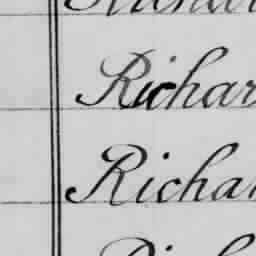 Richar
Richar